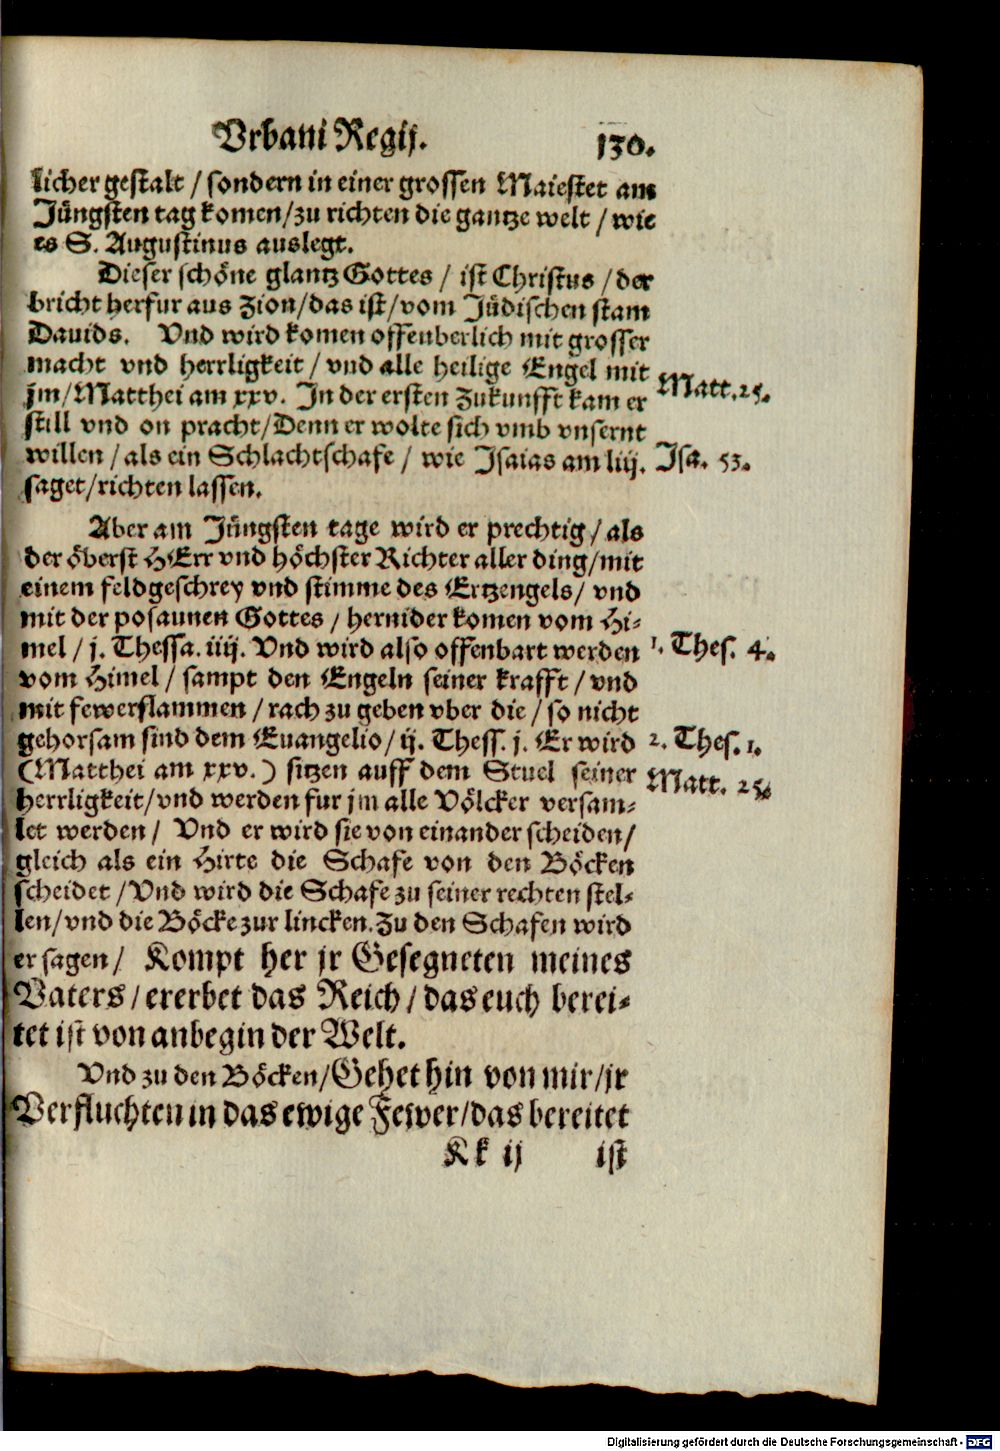 Vrbani Regij. 130.
licher gestalt / sondern in einer grossen Maiestet am
Jüngsten tag komen/zu richten die gantze welt / wie
es S. Augustinus auslegt.
Dieser schöne glantz Gottes / ist Christus / der
bricht herfur aus Zion/das ist/vom Jüdischen stam
Dauids. Vnd wird komen offenberlich mit grosser
macht vnd herrligkeit / vnd alle heilige Engel mit
jm/Matthei am xxv. In der ersten Zukunfft kam er
Matt. 25.
still vnd on pracht/Denn er wolte sich vmb vnsernt
willen / als ein Schlachtschafe / wie Isaias am liij.
Isa. 53.
saget/richten lassen.
Aber am Jüngsten tage wird er prechtig / als
der öberst HErr vnd höchster Richter aller ding/mit
einem feldgeschrey vnd stimme des Ertzengels/ vnd
mit der posaunen Gottes / hernider komen vom Hi-
mel / j. Thessa. iiij. Vnd wird also offenbart werden
1. Thes. 4.
vom Himel / sampt den Engeln seiner krafft / vnd
mit fewerflammen / rach zu geben vber die / so nicht
gehorsam sind dem Euangelio/ ij. Thess. j. Er wird
2. Thes. 1.
(Matthei am xxv.) sitzen auff dem Stuel seiner
Matt. 25.
herrligkeit/vnd werden fur jm alle Völcker versam-
let werden / Vnd er wird sie von einander scheiden/
gleich als ein Hirte die Schafe von den Böcken
scheidet / Vnd wird die Schafe zu seiner rechten stel-
len/vnd die Böcke zur lincken. Zu den Schafen wird
er sagen / Kompt her jr Gesegneten meines
Vaters / ererbet das Reich / das euch berei-
tet ist von anbegin der Welt.
Vnd zu den Böcken/Gehet hin von mir/jr
Verfluchten in das ewige Fewer/das bereitet
Kk ij ist
Digitalisierung gefördert durch die Deutsche Forschungsgemeinschaft - DFG